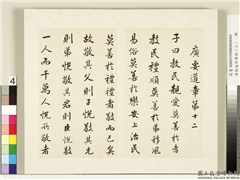 廣要道章第十二
子曰教民親愛莫善於孝
教民禮順莫善於弟移風
易俗莫善於樂安上治民
莫善於禮禮者敬而已矣
故敬其父則子悅敬其兄
則弟悅敬其君則臣悅敬
一人而千萬人悅所敬者
4